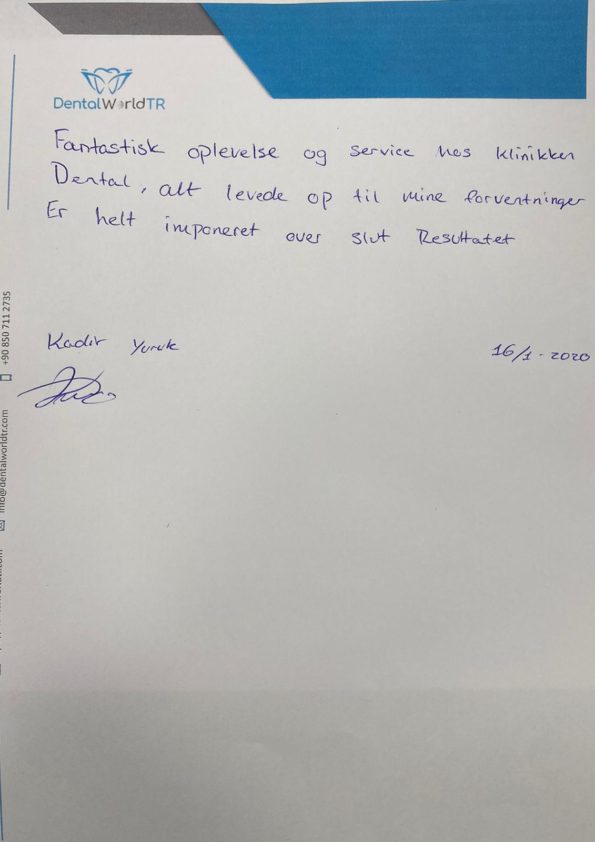 DentalWorldTR
Fantastisk oplevelse og service hos klinikken
Dental, alt levede op til mine forventninger
Er helt imponeret over slut Resultatet
Kadir Yuruk
16/1-2020
+90 850 711 2735
info@dentalworldtr.com